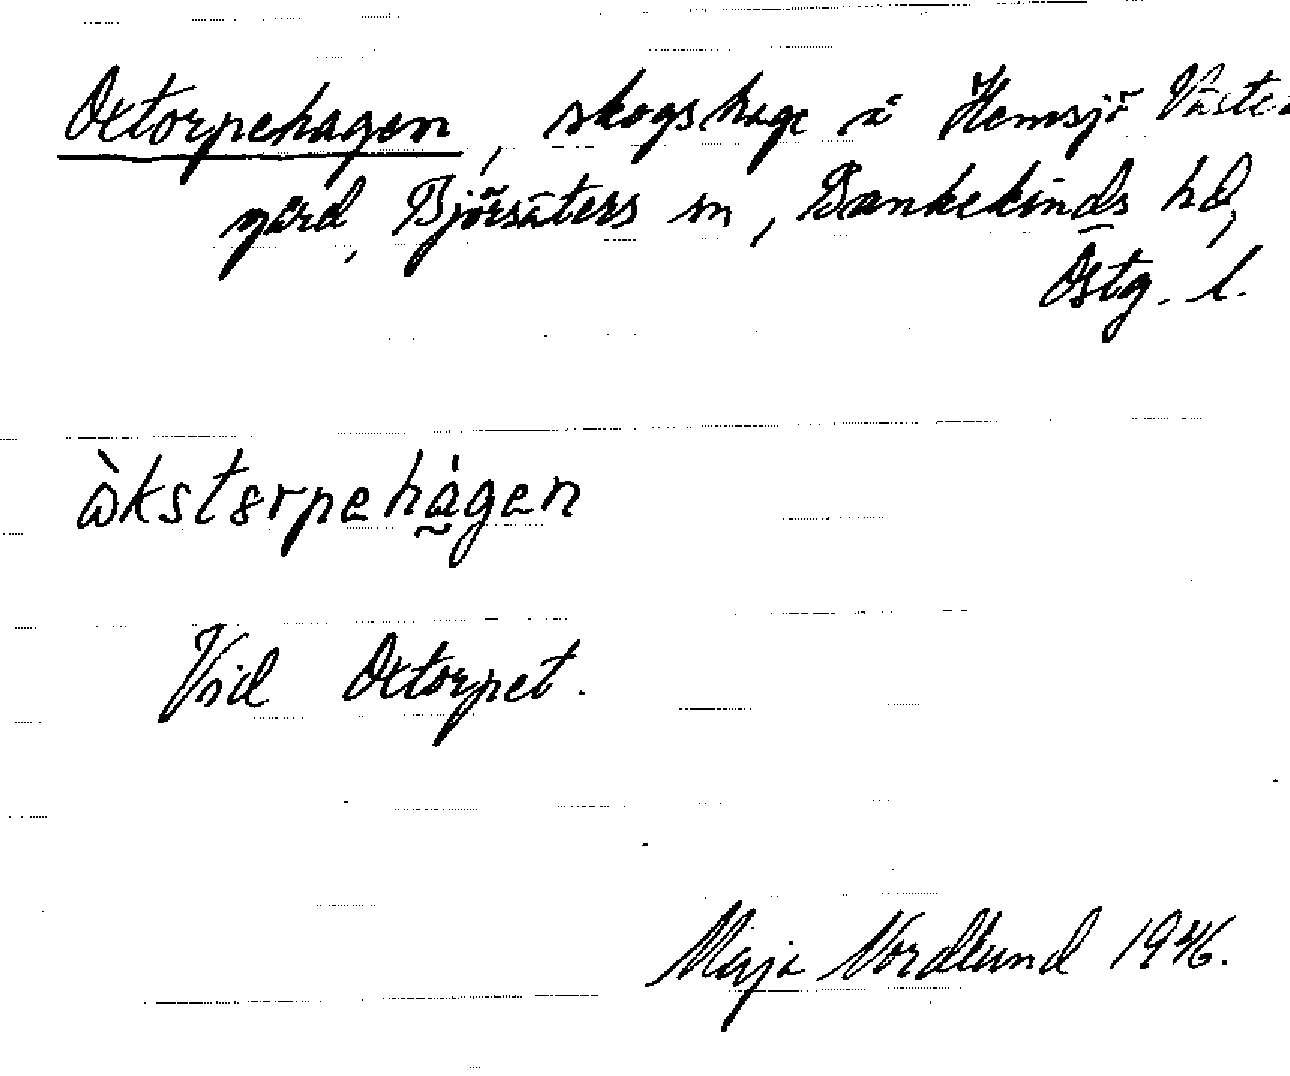 Oxtorpehagen, skogshage å Hemsjö Väster
gård, Björsäters sn, Bankekinds hd,
Östg. l.
ὼkstɞrpehágen
Vid Oxtorpet.
Mirja Nordlund 1946.